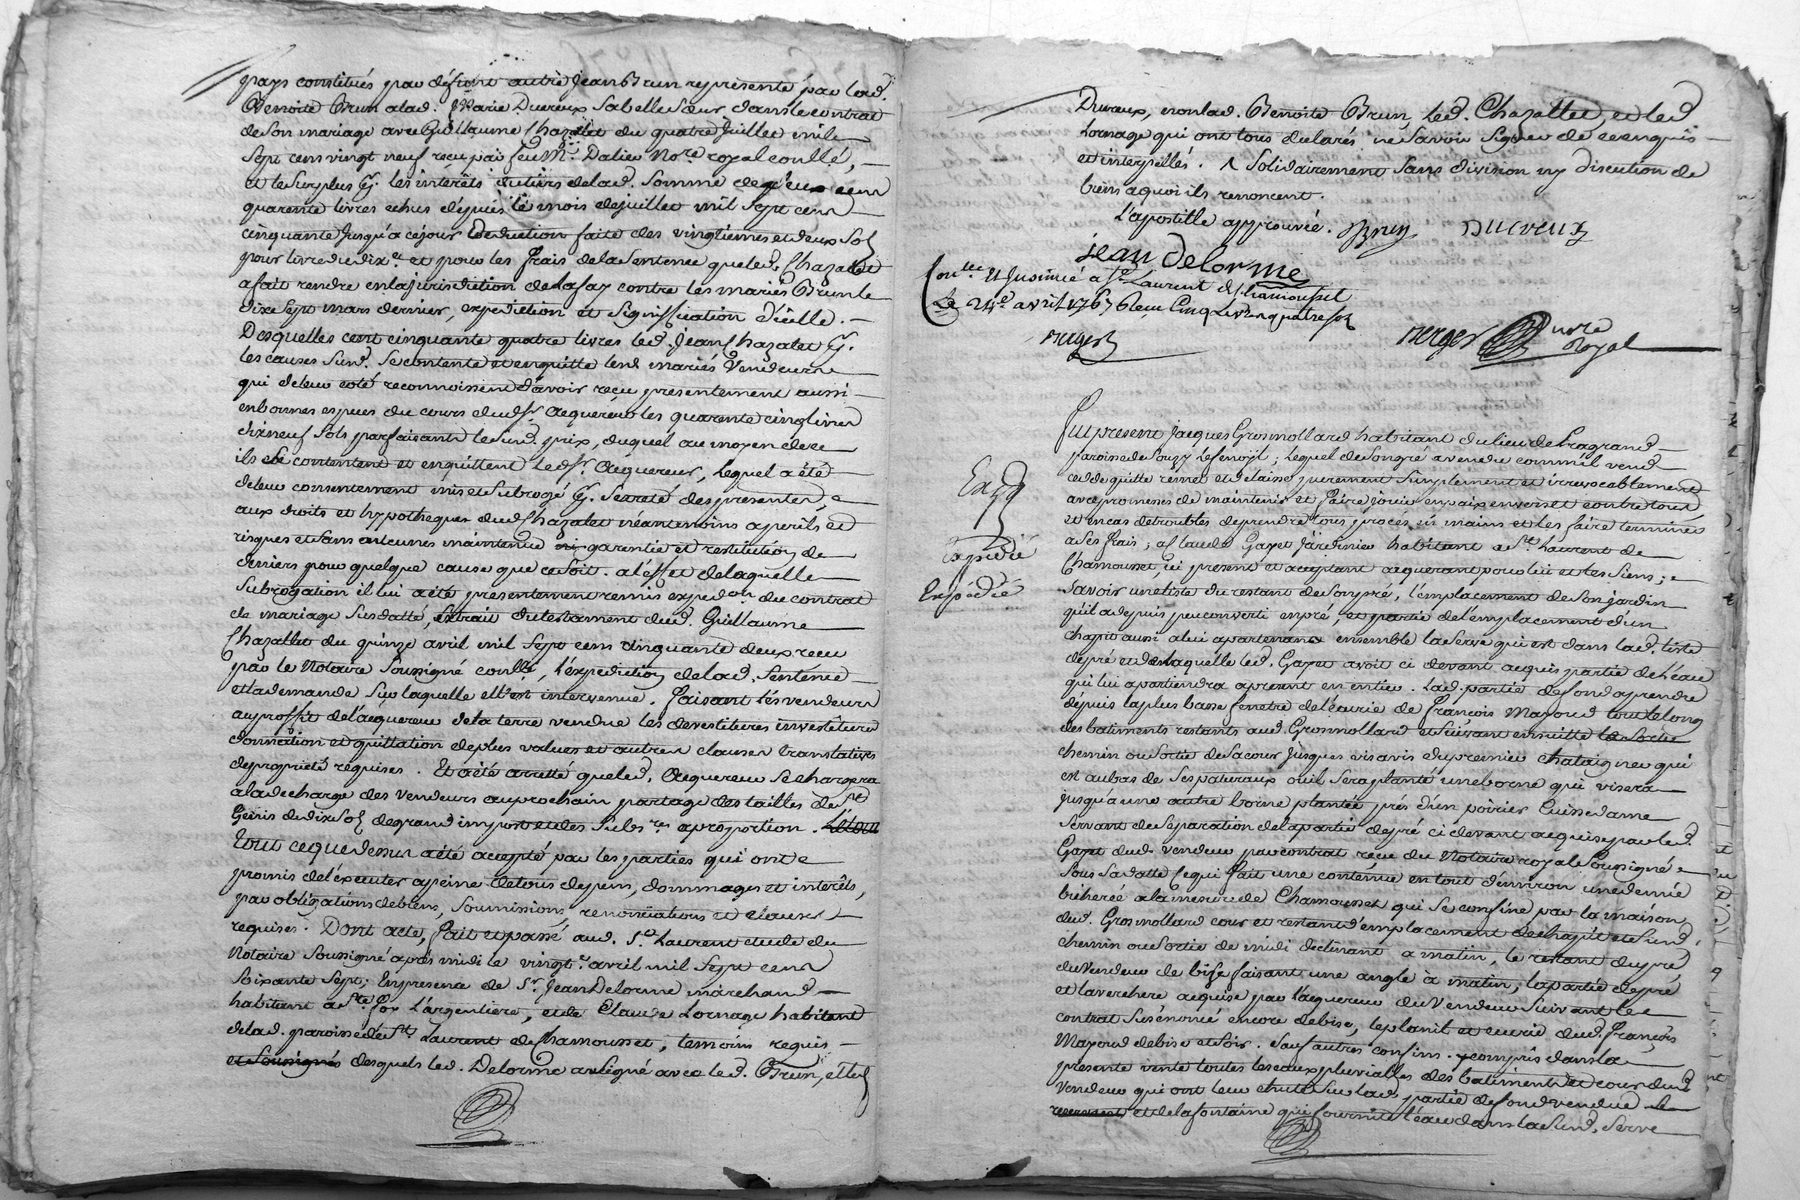 pays constitués par défunt autre Jean Brun representé par lad.
Benoite Brun a lad. Marie Ducreux sa belle sœur dans le contrat
de son mariage avec Guillaume Chazalet du quatre Juillet mile
sept cens vingt neuf reçu par feu Me. Dalieu Nore royal coullé,
et le surplus pr. les intérêts du tiers de lad. somme de deux cens
quarente livres echus depuis le mois de juillet mil sept cens
cinquante jusqu'a ce jour deduction faite des vingtiemes et deux sols
pour livre du dixe. et pour les frais de la sentence que led. Chazalet
a fait rendre en la jurisdiction de la fay contre les mariés Brun le
dixe sept mars dernier, expedition et signiffication d'icelle.
Desquelles cent cinquante quatre livres led. Jean Chazalet pr.
les causes susd. se contente et enquitte lesd. mariés Vendeurs
qui de leur coté reconnoissent d'avoir reçu presentement aussi
en bonnes especes du cours dud. sr. acquereur les quarente cinq livres
dixneuf sols parfaisants le susd. prix, duquel au moyen de ce
ils se contentent et enquittent led. sr. acquereur, lequel a été
de leur consentement mis et subrogé pr. sureté des presentes
aux droits et hypotheques dud. Chazalet néantmoins a perils et
risques et sans aucunes maintenue ni garentie et restitution de
deniers pour quelque cause que ce soit. a l'effet de laquelle
subrogation il lui a été presentement remis expedon. du contrat
de mariage susdatté, extrait du testament dud. Guillaume
Chazallet du quinze avril mil sept cens cinquante deux recu
par le Notaire soussigné coullé, l'expedition de lad. sentence
et la demande sur laquelle elle est intervenue. faisant les vendeurs
au proffit de l'acquereur de la terre vendue les devestitures investitures
donnation et quittation de plus values et autres clauses translatives
de propriété requises. Et a été arretté que led. acquereur se chargera
a la decharge des vendeurs au prochain partage des tailles de St.
Genis de dix sols de grand impost et des subsres. a proportion.
Tout ce que dessus a été accepté par les parties qui ont
promis de l'éxecuter a peine de tous depens, dommages et interêts,
par obligations de biens, soumissions, renonciations et clauses
requises. Dont acte, fait et passé aud. St. Laurent etude du
Notaire soussigné après midi le vingte. avril mil sept cens
soixante sept; En presence de Sr. Jean Delorme marchand
habitant a Ste. foy l'argentiere, et de Claude Lornage habitant
de lad. paroisse de St. Laurent de Chamousset, temoins requis
et soussignés desquels led. Delorme a signé avec led. Brun, et led.
Ducreux, non lad. Benoite Brun, led. Chazallet, et led.
Lornage qui ont tous declarés ne savoir signer de ce enquis
et interpellés. ^ Solidairement sans division ny discution de
biens a quoi ils renoncent.
L'apostille approuvée. Brun Ducreux
jean Delorme
Conlle. Et Insinué a St. Laurent de Chamousset
Le 24e. avril 1767 Reçu Cinq livres quatre sols
Berger
Berger nore
Royal
Fut present Jacques Grosmollard habitant du lieu de Fragrand
paroisse de Souzy ; lequel de son gré a vendu comme il vend
cede quitte remet et delaisse purement simplement et irrevocablement
avec promesses de maintenir et faire jouir en paix envers et contre tous
et en cas de troubles de prendre tous procés en mains et les faire terminer
a ses frais; a Claude Gayet Jardinier habitant a St. Laurent de
Chamousset, ici present et acceptant acquerant pour lui et les siens;
Expé
Copie die
Expédié
savoir une liste du restant de son pré, l'emplacement de son jardin
qu'il a depuis peu converti en pré, et partie de l'emplacement d'un
chapit aussi a lui apartenant ensemble la serve qui est dans lad. liste
de pré et de laquelle led. Gayet avoit ci devant acquis partie de l'eau
qui lui apartiendra apresent en entier. Lad. partie de fond a prendre
depuis la plus basse fenetre de l'écurie de François Mazoud tout le long
des batiments restants aud. Grosmollard et suivant ensuitte la sortie
chemin ou sortie de sa cour jusques vis avis du premier chataigner qui
est au bas de ses pateraux ou il sera planté une borne qui visera
jusqu'a une autre borne plantée près d'un poirier Cuisse dame
servant de séparation de la partie de pré ci devant acquise par led.
Gayet dud. vendeur par contrat reçu du Notaire royal soussigné
sous sa datte ce qui fait une contenue en tout d'environ une demie
bicherée a la mesure de Chamousset qui se confine par la maison
dud. Grosmollard cour et restant d'emplacement de chapit et susd.
chemin ou sortie de midi declinant a matin, le restant du pré
du Vendeur de bise faisant une angle à matin, la partie de pré
et la verchere acquise par l'acquereur du Vendeur suivant le
contrat susénoncé encore de bise, le planil et ecurie dud. François
Mazoud de bise et soir. Sauf autres confins. y compris dans la
presente vente toutes les eaux pluvialles des batiments et cour dud.
Vendeur qui ont leur chute sur lad. partie de fond vendue
et de la fontaine qui fournit l'eau dans la susd. serve